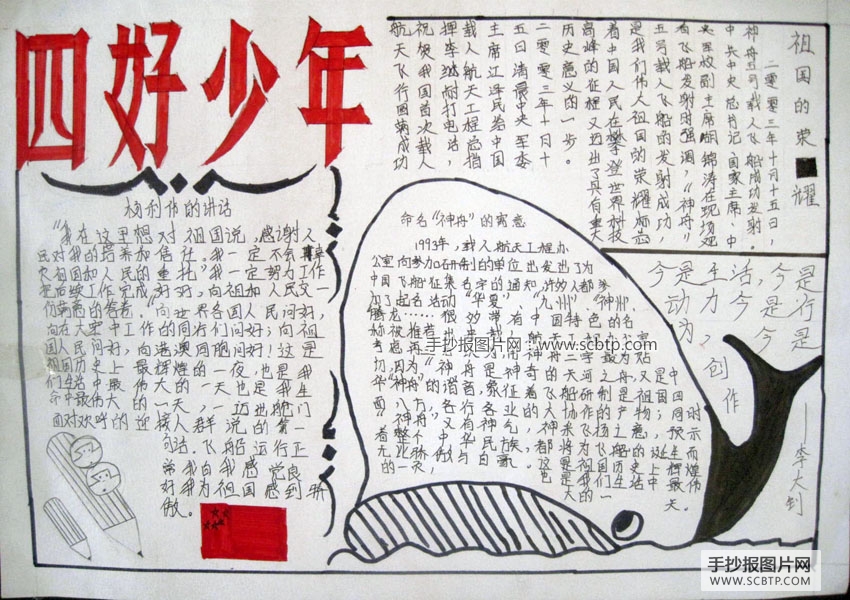 四好少年
祖国的荣耀
二零零三年十月十五日，
神舟五号载人飞船成功发射。
中共中央总书记、国家主席、中
央军委副主席胡锦涛在现场观
看飞船发射时强调，“神舟”
五号载人飞船的发射成功，
是我们伟大祖国的荣耀标志
着中国人民在攀登世界科技
高峰的征程又迈出了具有重大
历史意义的一步。
二零零三年十月十
五日清晨中央军委
主席江泽民给中国
载人航天工程总指
挥李继耐打电话，
祝贺我国首次载人
航天飞行圆满成功
杨利伟的讲话
“我在这里想对祖国说，感谢人
民对我的培养和信任。我一定不会辜
祖国和人民的重托”我一定努力工作
把后续工作完成好好，向祖国和人民交一
份满意的答卷。”向世界各国人民问好，
向在太空中工作的同行们问好；向祖
国人民问好，向港澳同胞问好！这是
祖国历史上最辉煌的一夜，也是我
们生活中最伟大的一天也是我生
命中最伟大的一天，一迈出舱门
面对欢呼的迎接人群说的第一
句话。飞船运行正
常我自我感觉良
好我为祖国感到骄
傲。
命名“神舟”的寓意
1993年，载人航天工程办
公室向参加研制的单位出发出了为
中国飞船征集名字的通知许多人都参
加了起名活动“华夏”、“九州”、“神州、
腾龙……很多带有中国特色的名
称被推荐出来
考虑再
切，因为“神舟”是神奇的天河之舟，又是中
华“神州”的谐音，象征着飞船研制是祖国四
面八方，各行各业的大协作的产物；同时
“神舟”又有神气，神来飞扬之意，预示
着整个中华民族，都将为飞船的诞生而
无比骄傲与自豪。这是祖国历史上辉煌
的一夜，也是我们生活中最
伟大的一天。
今是生活，今是
动力今是行
为，今是
创作
——李大钊
手抄报图片网：www.scbtp.com
手抄报图片网
WWW.SCBTP.COM